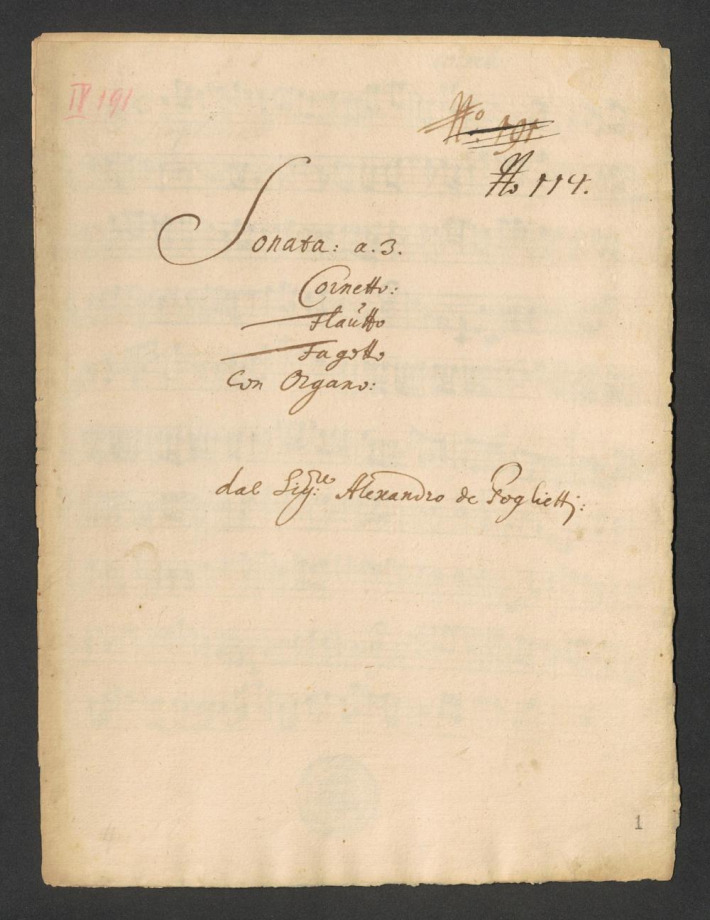 IV 191
No. 191.
No 114.
Sonata: a. 3.
Cornetto:
Flautto
Fagotto
Con Organo:
dal Sig:re Alexandro de Poglietti:
1